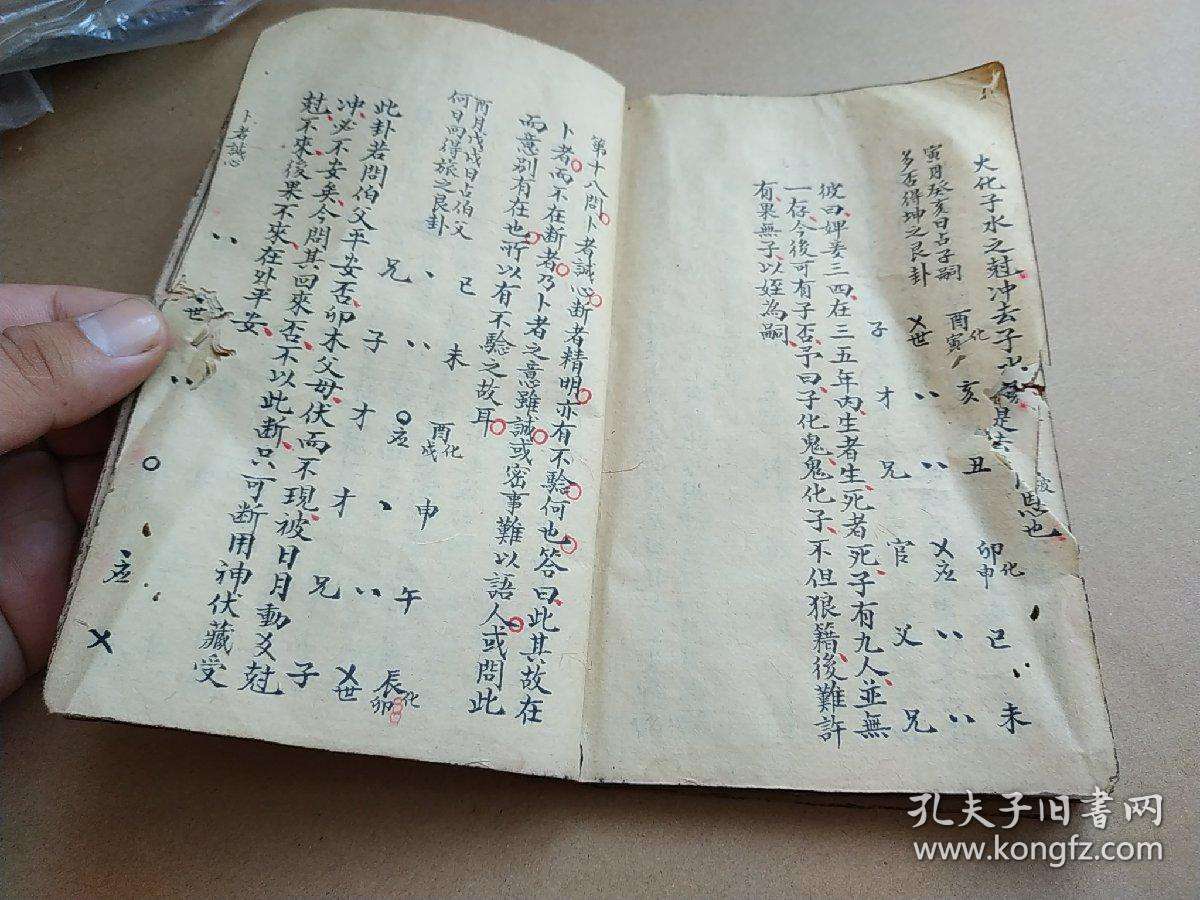 大化子水之尅冲去子
是
恩也
寅月癸亥日占子嗣
多否得坤之艮卦
酉化
寅
子 乂世
才 亥
兄 丑
官 乂应 卯化
申
父 巳
兄 未
彼曰婢妾三四在三五年内生者生死者死子有九人並無
一存今後可有子否予曰子化鬼鬼化子不但狼藉後難許
有果無子以姪為嗣
第十八問卜者誠心断者精明亦有不驗何也答曰此其故在
卜者而不在断者乃卜者之意雖誠或密事難以語人或問此
而意别有在也所以有不驗之故耳
酉月戊戌日占伯父
何日回得旅之艮卦
兄 巳
子 未
才 应 酉化
戌
才 申
兄 午
子 乂世 辰化
卯
此卦若問伯父平安否卯木父母伏而不現被日月動爻尅
冲必不安矣今問其回來否不以此断只可断用神伏藏受
尅不來後果不來在外平安
卜者誠心
世
应
乂
孔夫子旧书网
www.kongfz.com